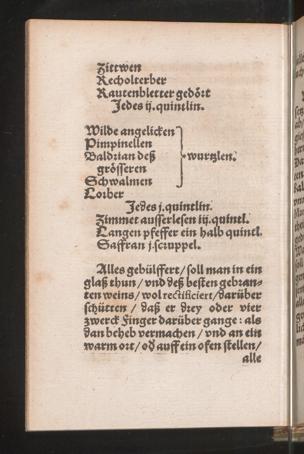 Zittwen
Recholterber
Rautenbletter gedört
Jedes ij. quintlin.
Wilde angelicken
Pimpinellen
Baldrian deß
grösseren
Schwalmen
wurtzlen.
Lorber
Jedes j. quintlin.
Zimmet ausserlesen iij. quintl.
Langen pfeffer ein halb quintl.
Saffran j. scruppel.
Alles gebülffert / soll man in ein
glaß thun / vnd deß besten gebran-
ten weins / wol rectificiert / darüber
schütten / daß er drey oder vier
zwerck Finger darüber gange: als
dan beheb vermachen / vnd an ein
warm ort / oď auff ein ofen stellen /
alle